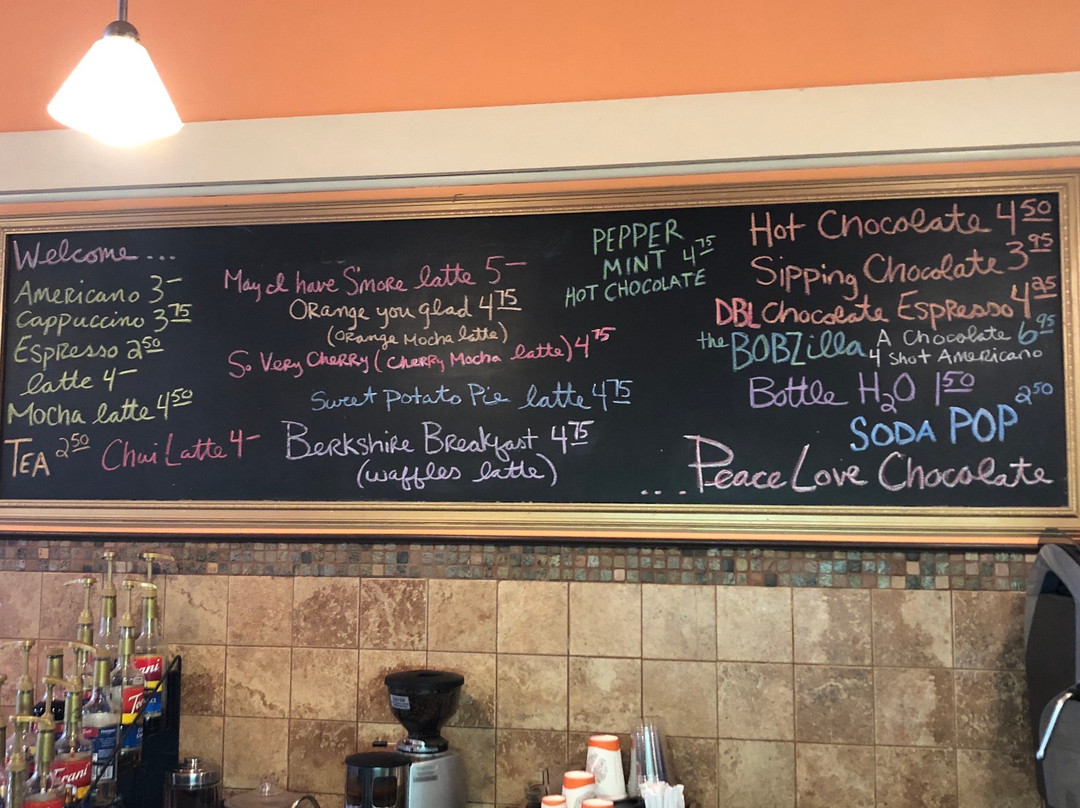 Welcome...
Americano 3-
Cappuccino 3.75
Espresso 2.50
latte 4-
Mocha latte 4.50
TEA 2.50
Chai Latte 4-
May I have S'more latte 5-
Orange you glad 4.75
(orange Mocha latte)
So Very Cherry (Cherry Mocha latte) 4.75
Sweet Potato Pie latte 4.75
Berkshire Breakfast 4.75
(waffles latte)
PEPPER
MINT 4.75
HOT CHOCOLATE
Hot Chocolate 4.50
Sipping Chocolate 3.95
DBL Chocolate Espresso 4.25
the BOBZilla A Chocolate 6.95
4 shot Americano
Bottle H2O 1.50
SODA POP 2.50
... Peace Love Chocolate
Torani